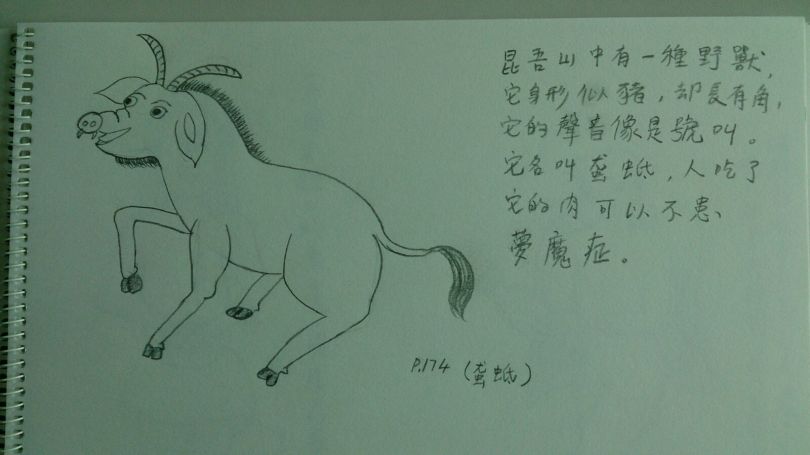 昆吾山中有一種野獸,
它身形似豬,却長有角,
它的聲音像是號叫。
它名叫蠪蚳,人吃了
它的肉可以不患、
夢魔症。
P.174 (蠪蚳)